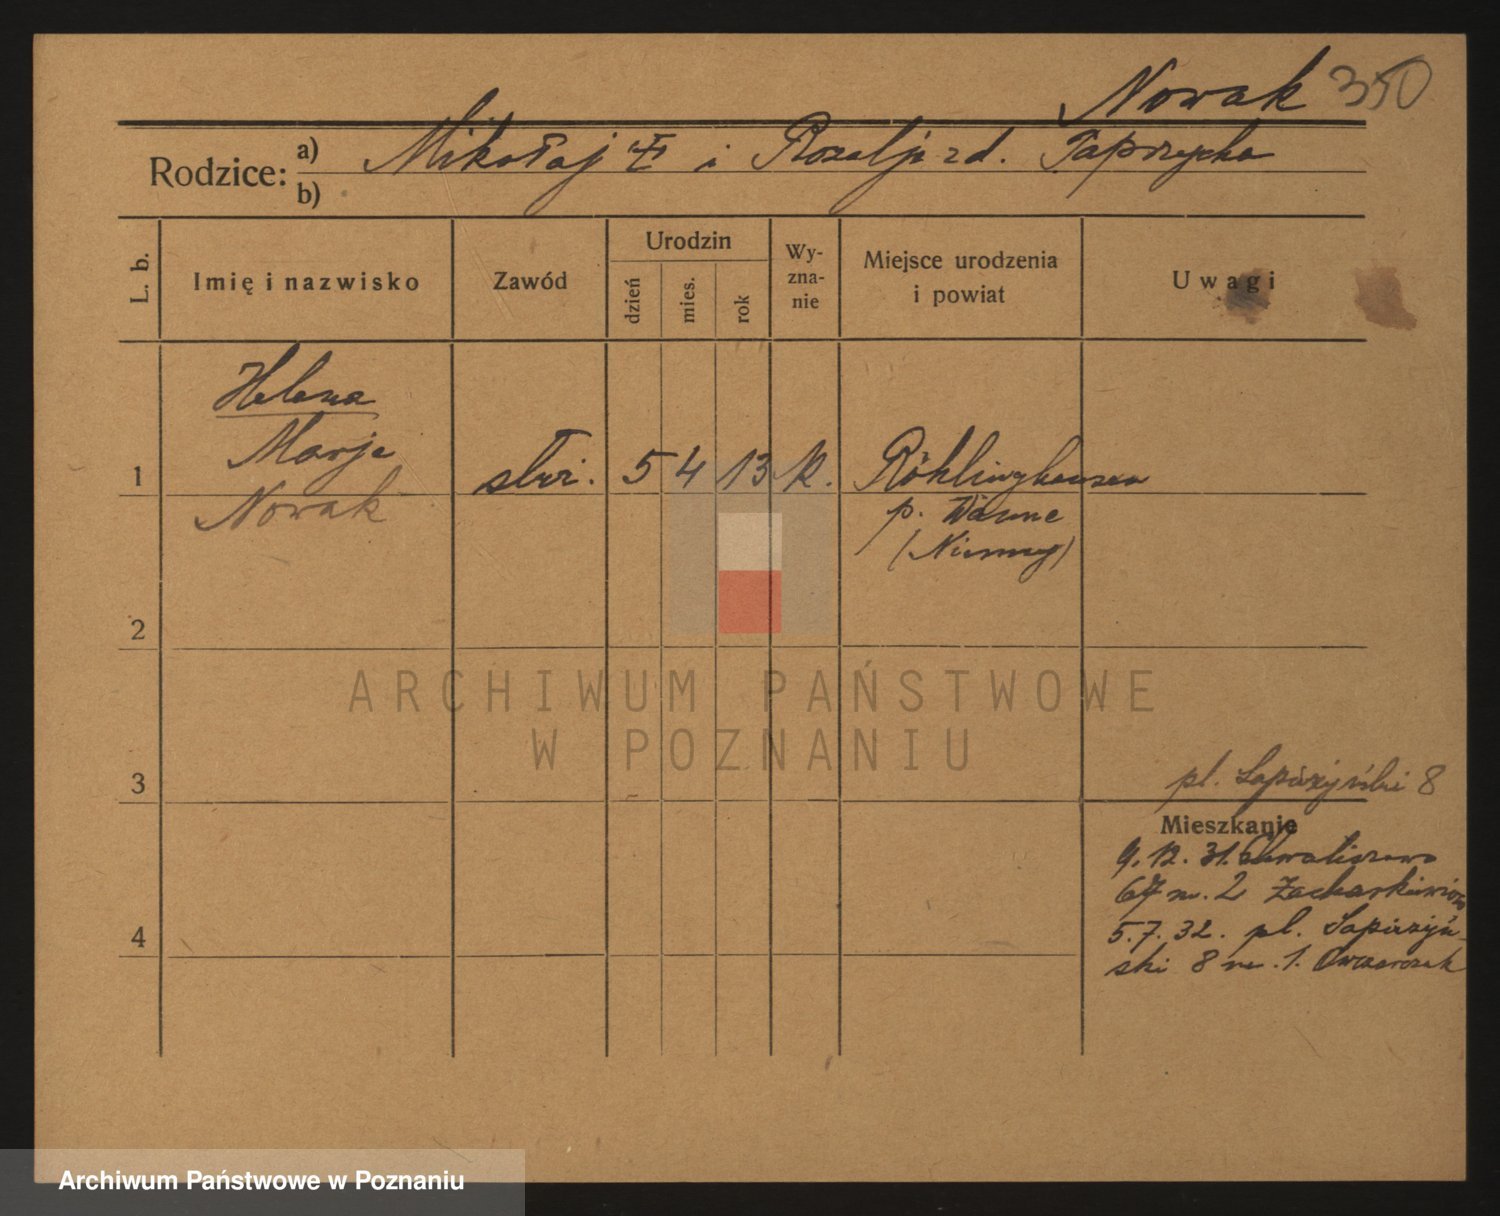 Nowak 350
Rodzice: a) Mikołaj i Rozalja zd. Paprzycka
b)
L. b.
Imię i nazwisko
Zawód
Urodzin
dzień
mies.
rok
Wy-
zna-
nie
Miejsce urodzenia
i powiat
Uwagi
Helena
Marja
Nowak
1
służ. 5 4 13 k. Röhlinghausen
p. Wanne
(Niemcy)
2
ARCHIWUM PAŃSTWOWE
W POZNANIU
3
pl. Sapieżyński 8
Mieszkanie
9. 12. 31. Chwaliszewo
67 m. 2 Zacharkiewicz
5. 7. 32. pl. Sapieżyń-
ski 8 m. 1. Owczarczak
4
Archiwum Państwowe w Poznaniu